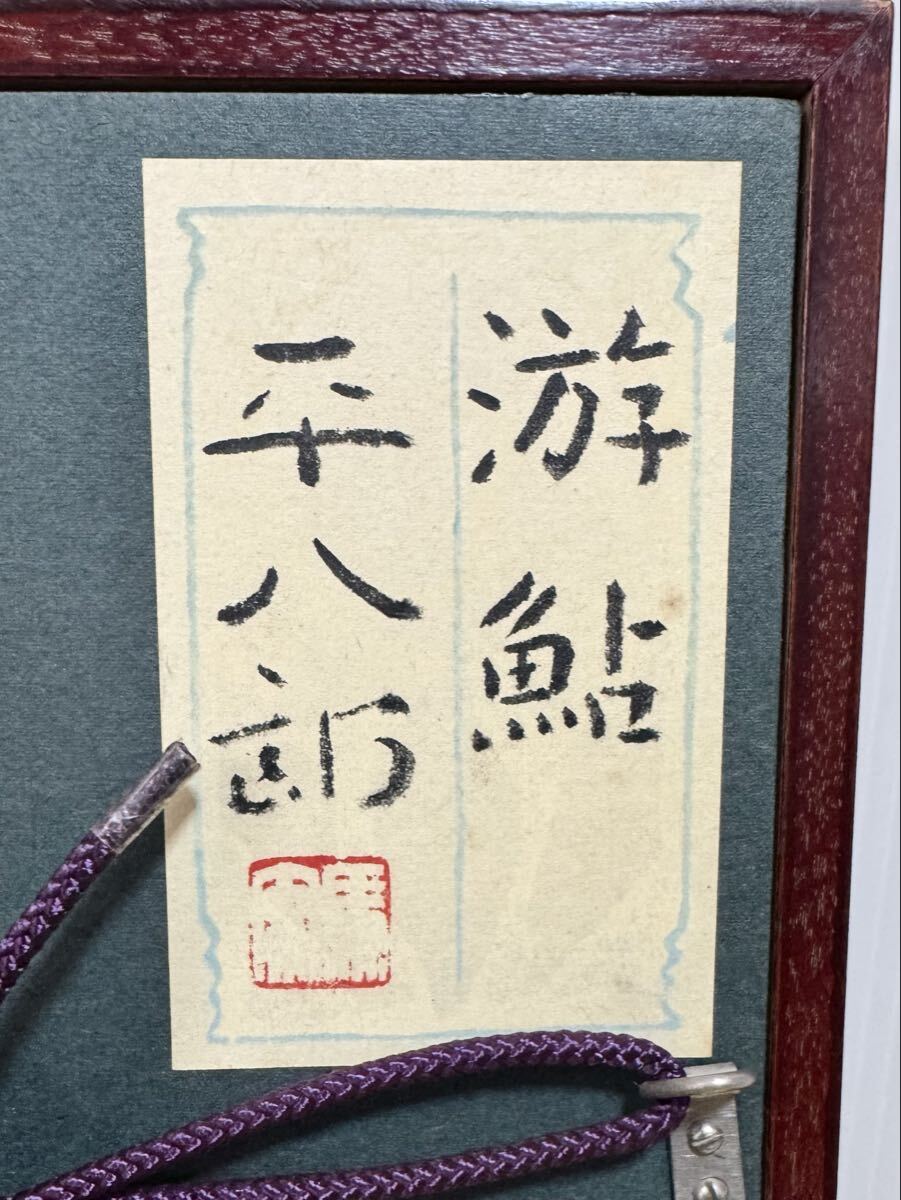 游鮎
平八郎